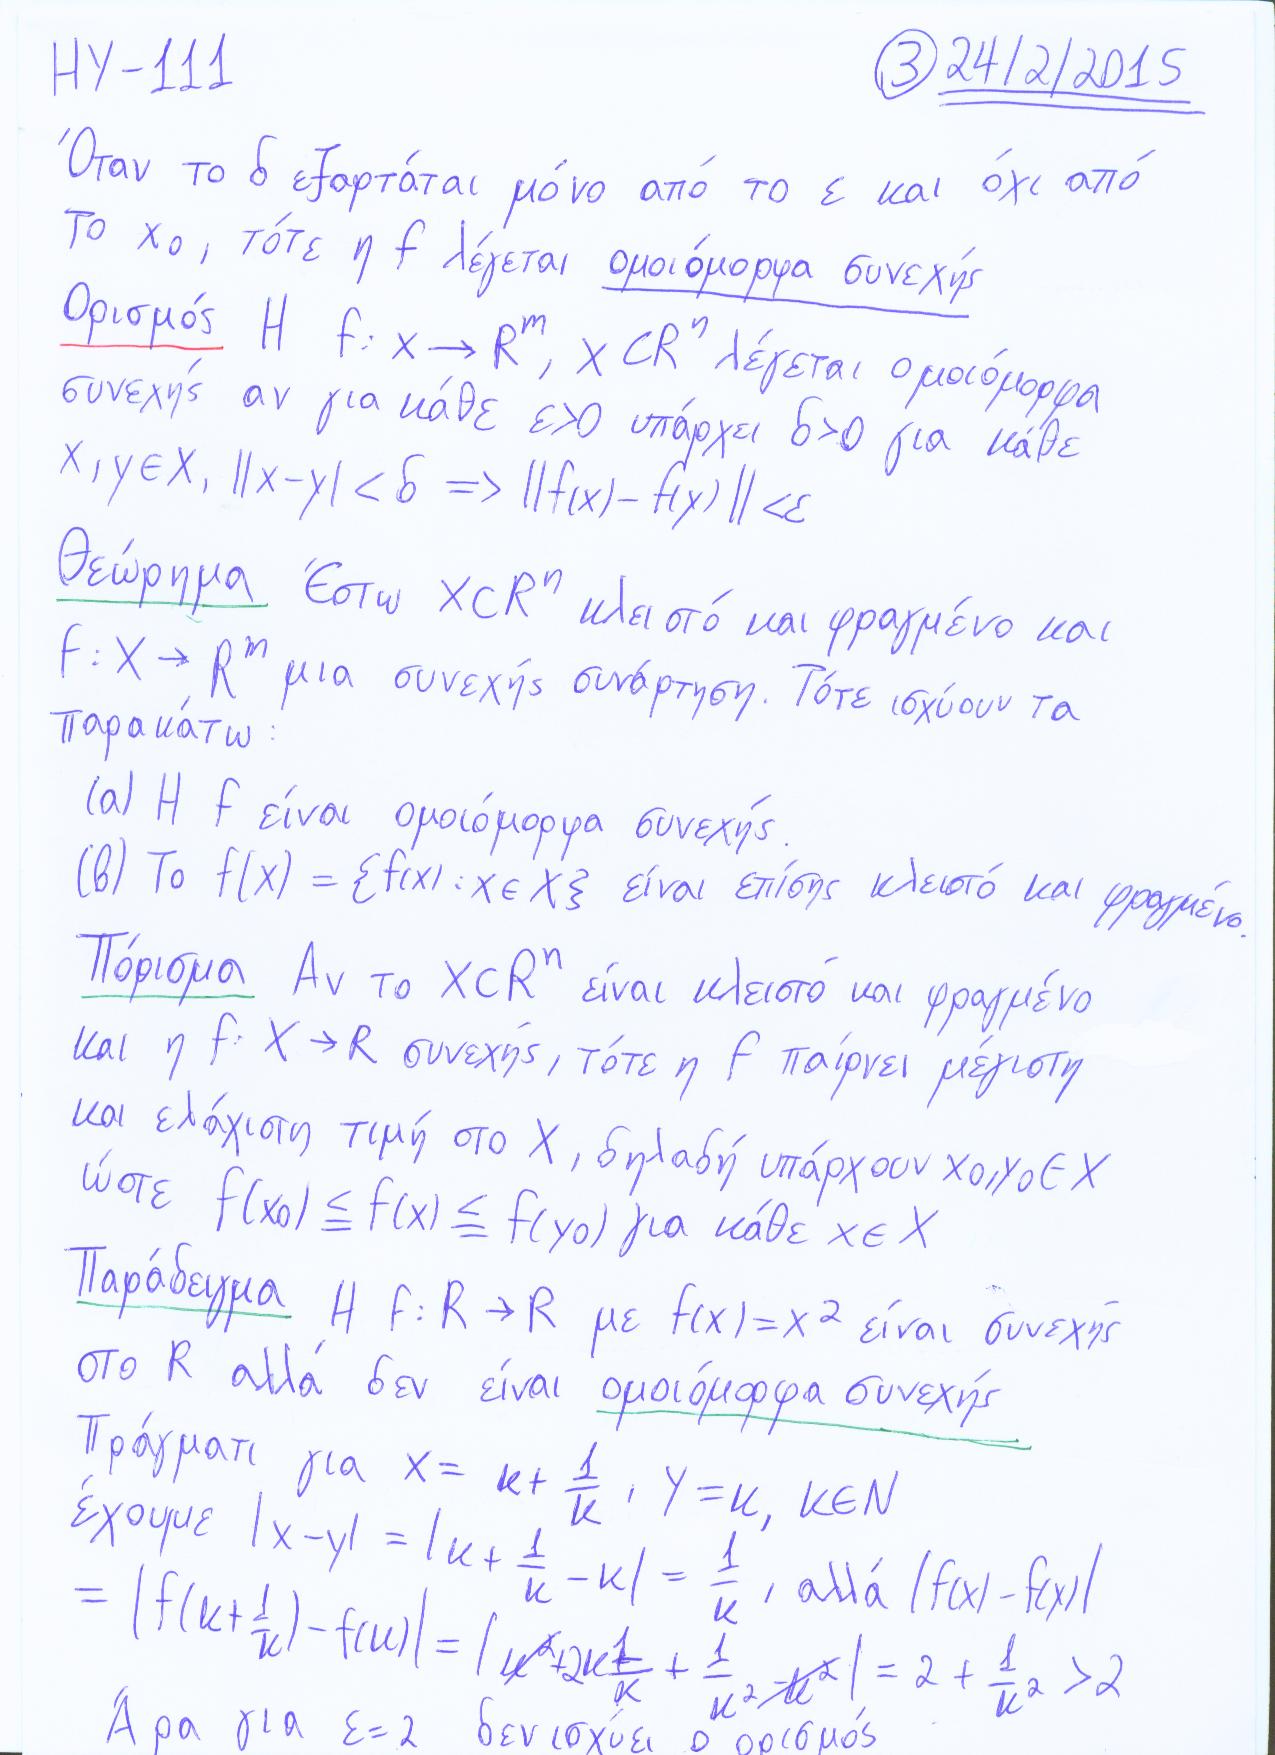 ΗΥ-111 ③ 24/2/2015
Όταν το δ εξαρτάται μόνο από το ε και όχι από
το x₀, τότε η f λέγεται ομοιόμορφα συνεχής
Ορισμός Η f: X → Rᵐ, X ⊂ Rⁿ λέγεται ομοιόμορφα
συνεχής αν για κάθε ε>0 υπάρχει δ>0 για κάθε
x, y ∈ X, ||x-y| < δ => ||f(x) - f(y)|| < ε
Θεώρημα Έστω X ⊂ Rⁿ κλειστό και φραγμένο και
f: X → Rᵐ μια συνεχής συνάρτηση. Τότε ισχύουν τα
παρακάτω:
(α) Η f είναι ομοιόμορφα συνεχής.
(β) Το f(X) = {f(x): x ∈ X} είναι επίσης κλειστό και φραγμένο.
Πόρισμα Αν το X ⊂ Rⁿ είναι κλειστό και φραγμένο
και η f: X → R συνεχής, τότε η f παίρνει μέγιστη
και ελάχιστη τιμή στο X, δηλαδή υπάρχουν x₀, y₀ ∈ X
ώστε f(x₀) ≦ f(x) ≦ f(y₀) για κάθε x ∈ X
Παράδειγμα Η f: R → R με f(x) = x² είναι συνεχής
στο R αλλά δεν είναι ομοιόμορφα συνεχής
Πράγματι για x = κ + 1/κ, y = κ, κ ∈ N
έχουμε |x-y| = |κ + 1/κ - κ| = 1/κ, αλλά |f(x) - f(y)|
= |f(κ + 1/κ) - f(κ)| = |κ² + 2κ 1/κ + 1/κ² - κ²| = 2 + 1/κ² > 2
Άρα για ε=2 δεν ισχύει ο ορισμός